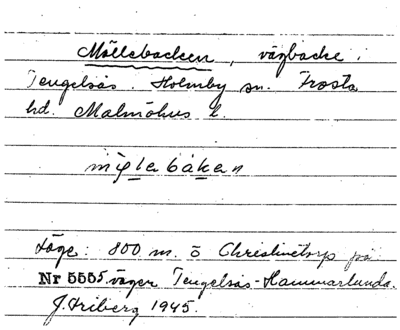 Möllebacken, vägbacke i
Tengelsås. Holmby sn. Frosta
hd. Malmöhus l.
möl̯lɘbåkɘn
Läge: 800 m. ö Christinetorp på
Nr 5555 vägen Tengelsås-Hammarlunda.
J. Friberg 1945.